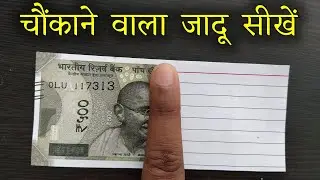 चौंकाने वाला जादू सीखें
भारतीय रिज़र्व बैंक
0LU 117313
₹५००